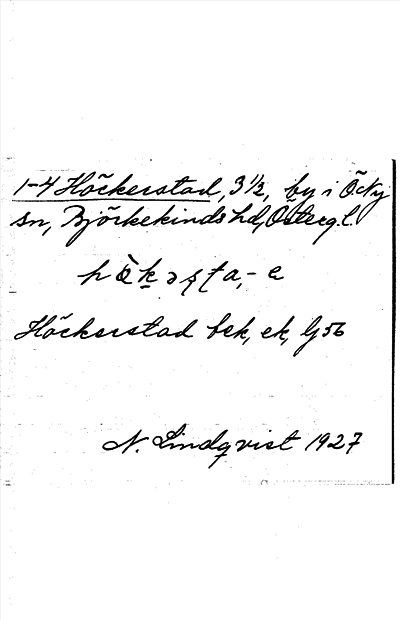 1-4 Höckerstad, 3 1/2, by i Ö Ny
sn, Björkekinds hd, Östergl.
Höckerstad bek, ek, Gj 56
N. Lindqvist 1927